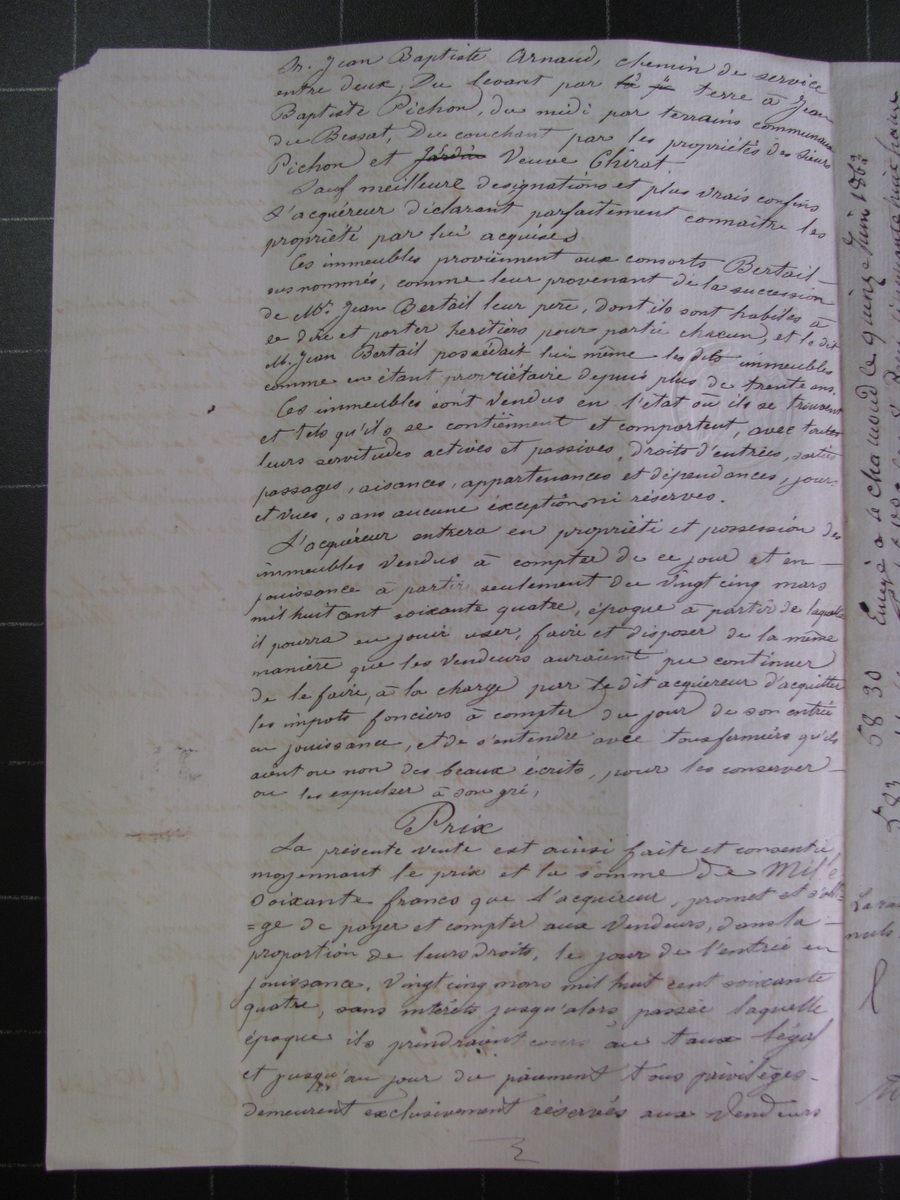 M. Jean Baptiste Arnaud, chemin de service
entre deux, Du levant par terre à Jean
Baptiste Pichon, du midi par terrains communaux
du Bessat, Du couchant par les propriétés des sieurs
Pichon et Jardin Veuve Chirat
Sauf meilleure designations et plus vrais confins
L'acquéreur déclarant parfaitement connaitre les
propriété par lui acquises
Ces immeubles proviênnent aux consorts Bertail
susnommés, comme leur provenant de la succession
de Mr. Jean Bertail leur père, dont ils sont habiles à
se dire et porter heritiers pour partie chacun, et le dit
M. Jean Bertail possédait lui même les dits immeubles
comme en étant propriétaire depuis plus de trente ans.
Ces immeubles sont vendus en l'état où ils se trouvent
et tels qu'ils se contiênnent et comportent, avec toutes
leurs servitudes actives et passives, droits d'entrées, sorties
passages, aisances, appartenances et dépendances, jours
et vues, sans aucune éxception ni réserves.
L'acquéreur entrera en propriété et possession des
immeubles vendus à compter de ce jour et en
jouissance à partir seulement du vingt cinq mars
mil huit cent soixante quatre, époque à partir de laquelle
il pourra en jouir user, faire et disposer de la même
manière que les vendeurs auraient pu continuer
de le faire, à la charge par le dit acquéreur d'acquitter
les impots fonciers à compter du jour de son entrée
en jouissance, et de s'entendre avec tous fermiers qu'ils
aient ou non des beaux écrits, pour les conserver
ou les expulser à son gré,
Prix
La présente vente est ainsi faite et consentie
moyennant le prix et la somme de Mille
Soixante francs que l'acquéreur, promet et s'obli
=ge de payer et compter aux Vendeurs, dans la
proportion de leurs droits, le jour de l'entrée en
jouissance, vingt cinq mars mil huit cent soixante
quatre, sans intérêts jusqu'alors passée laquelle
époque ils prendraient cours au taux légal
et jusqu'au jour du paiement tous privilèges
demeurent exclusivement réservés aux Vendeurs
58 30
583